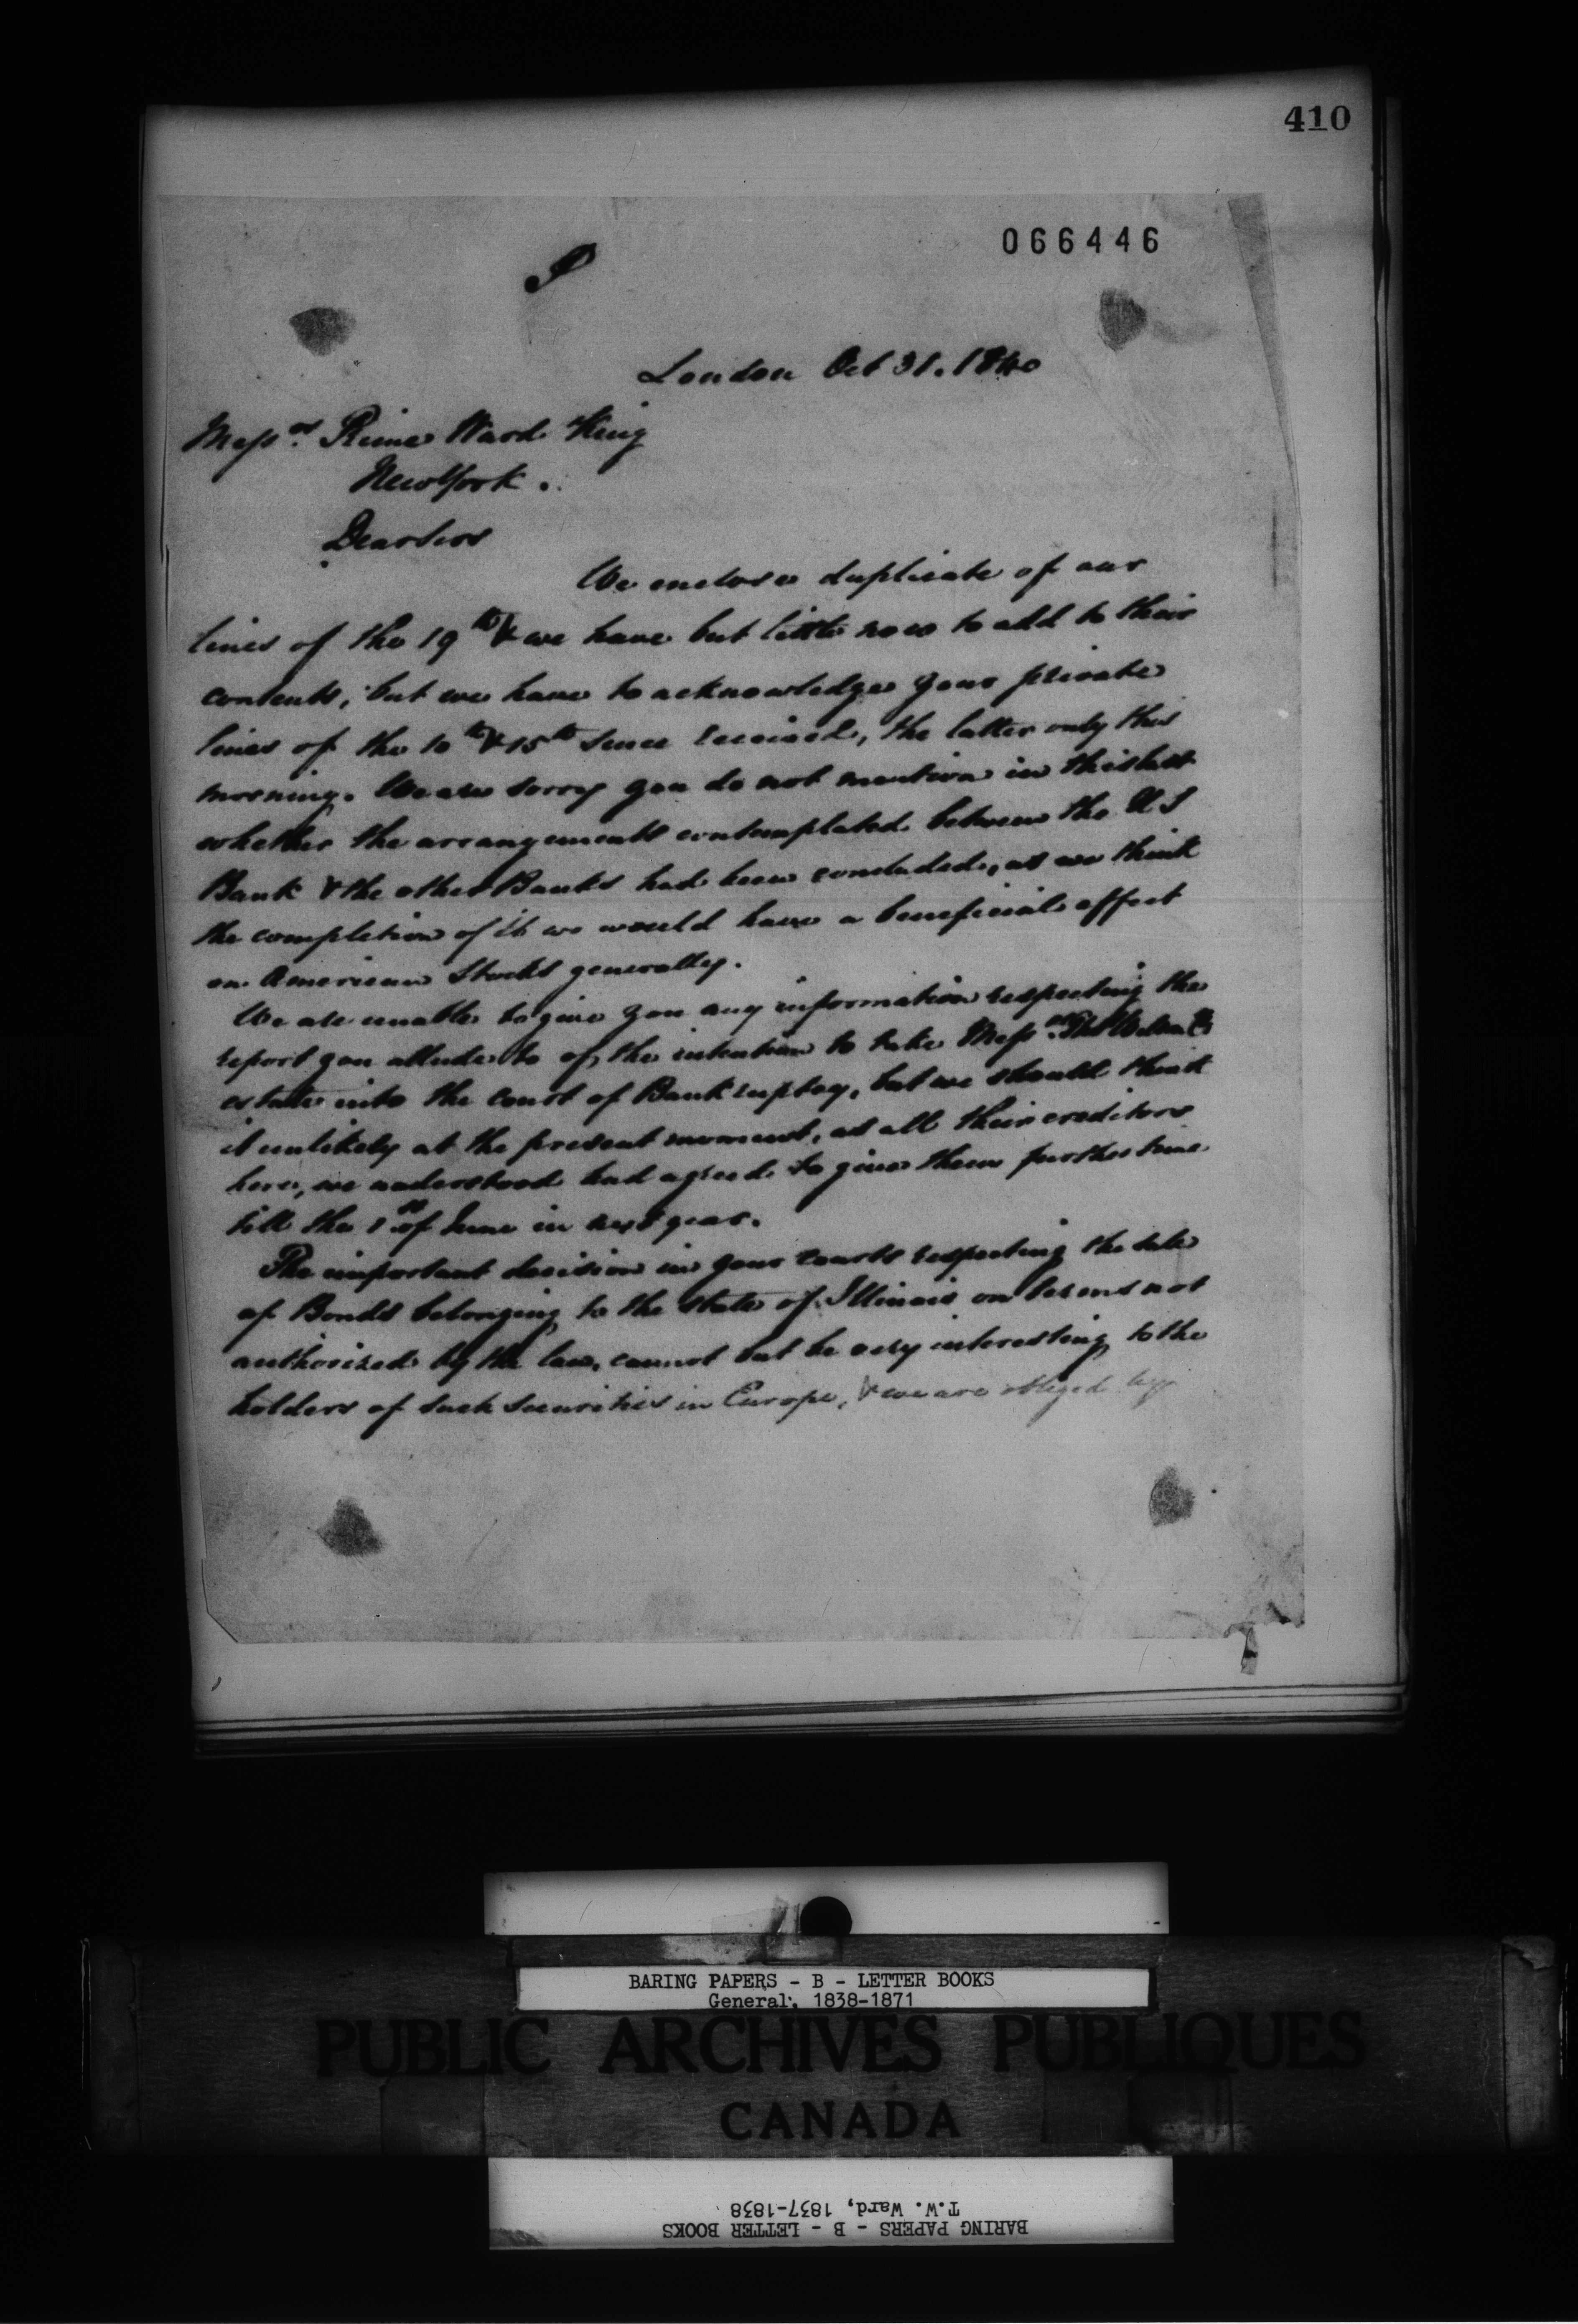 410
066446
P
London Oct 31. 1840
Messrs. Prime Ward & King
New York.
Dear Sirs
We enclose duplicate of our
lines of the 19th & we have but little now to add to their
contents, but we have to acknowledge your private
lines of the 10th & 15th since received, the latter only this
morning. We are sorry you do not mention in this last
whether the arrangements contemplated between the U S
Bank & the other Banks had been concluded, as we think
the completion of it we would have a beneficial effect
on American Stocks generally.
We are unable to give you any information respecting the
report you allude to of the intention to take Messrs. Thos Wilson & Co's
estate into the court of Bankruptcy, but we should think
it unlikely at the present moment, as all their creditors
here, we understood had agreed to give them further time
till the 1st of June in next year.
The important decision in your courts respecting the sale
of Bonds belonging to the state of Illinois on terms not
authorized by the law, cannot but be very interesting to the
holders of such securities in Europe, & we are obliged by
BARING PAPERS - B - LETTER BOOKS
General, 1838-1871
PUBLIC ARCHIVES PUBLIQUES
CANADA
BARING PAPERS - B - LETTER BOOKS
T.W. Ward, 1837-1838